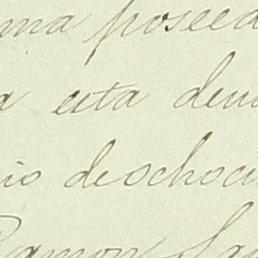 ma poseed
a esta den
io deochoci
Ramon Sa